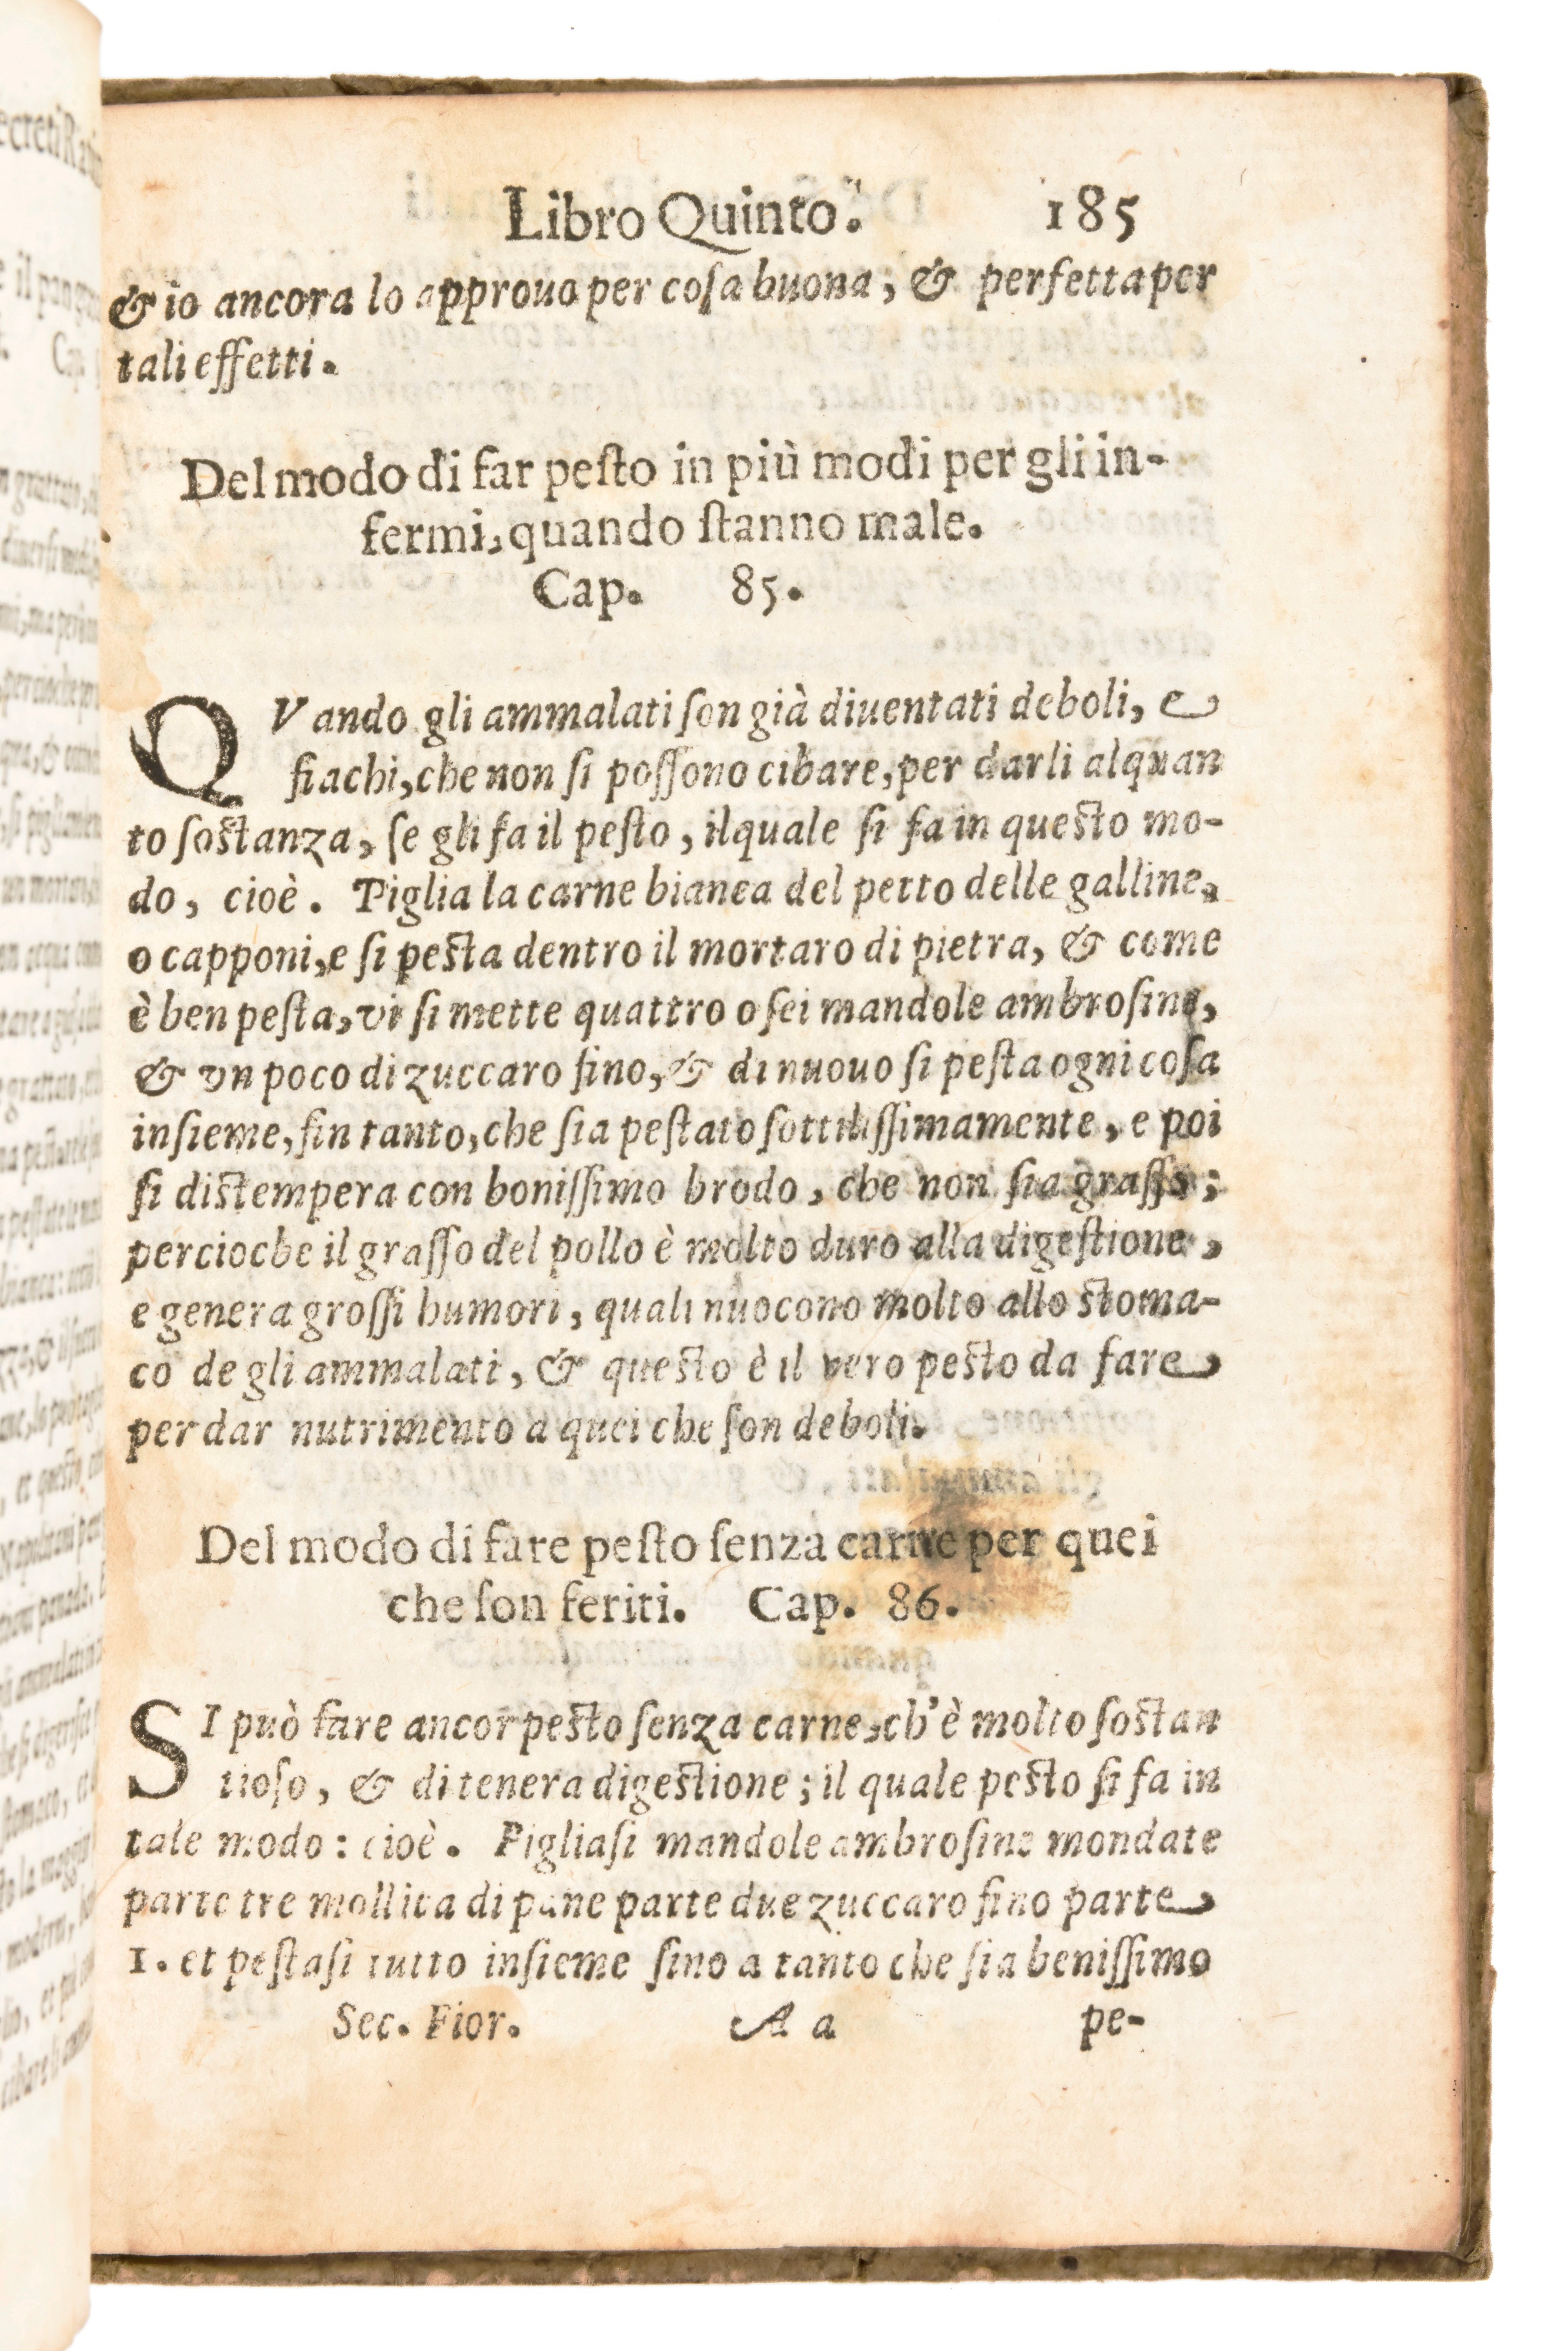 Libro Quinto. 185
& io ancora lo approuo per coſa buona; & perfetta per
tali effetti.
Del modo di far peſto in più modi per gli in-
fermi, quando ſtanno male.
Cap. 85.
QVando gli ammalati ſon già diuentati deboli, e
fiachi, che non ſi poſſono cibare, per darli alquan
to ſoſtanza, ſe gli fa il peſto, ilquale ſi fa in queſto mo-
do, cioè. Piglia la carne bianca del petto delle galline,
o capponi, e ſi peſta dentro il mortaro di pietra, & come
è ben peſta, vi ſi mette quattro o ſei mandole ambroſine,
& vn poco di zuccaro fino, & di nuouo ſi peſta ogni coſa
inſieme, fin tanto, che ſia peſtato ſottiliſſimamente, e poi
ſi diſtempera con boniſſimo brodo, che non ſia graſſo;
percioche il graſſo del pollo è molto duro alla digeſtione,
e genera groſſi humori, quali nuocono molto allo ſtoma-
co de gli ammalati, & queſto è il vero peſto da fare
per dar nutrimento a quei che ſon deboli.
Del modo di fare peſto ſenza carne per quei
che ſon feriti. Cap. 86.
SI può fare ancor peſto ſenza carne, ch'è molto ſoſtan
tioſo, & di tenera digeſtione; il quale peſto ſi fa in
tale modo: cioè. Pigliaſi mandole ambroſine mondate
parte tre mollica di pane parte due zuccaro fino parte
1. et peſtaſi tutto inſieme ſino a tanto che ſia beniſſimo
Sec. Fior. A a pe-